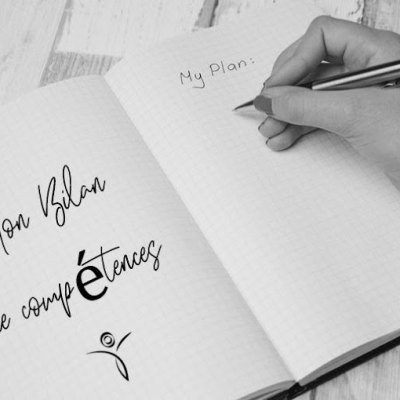 Bilan
compétences
My Plan: